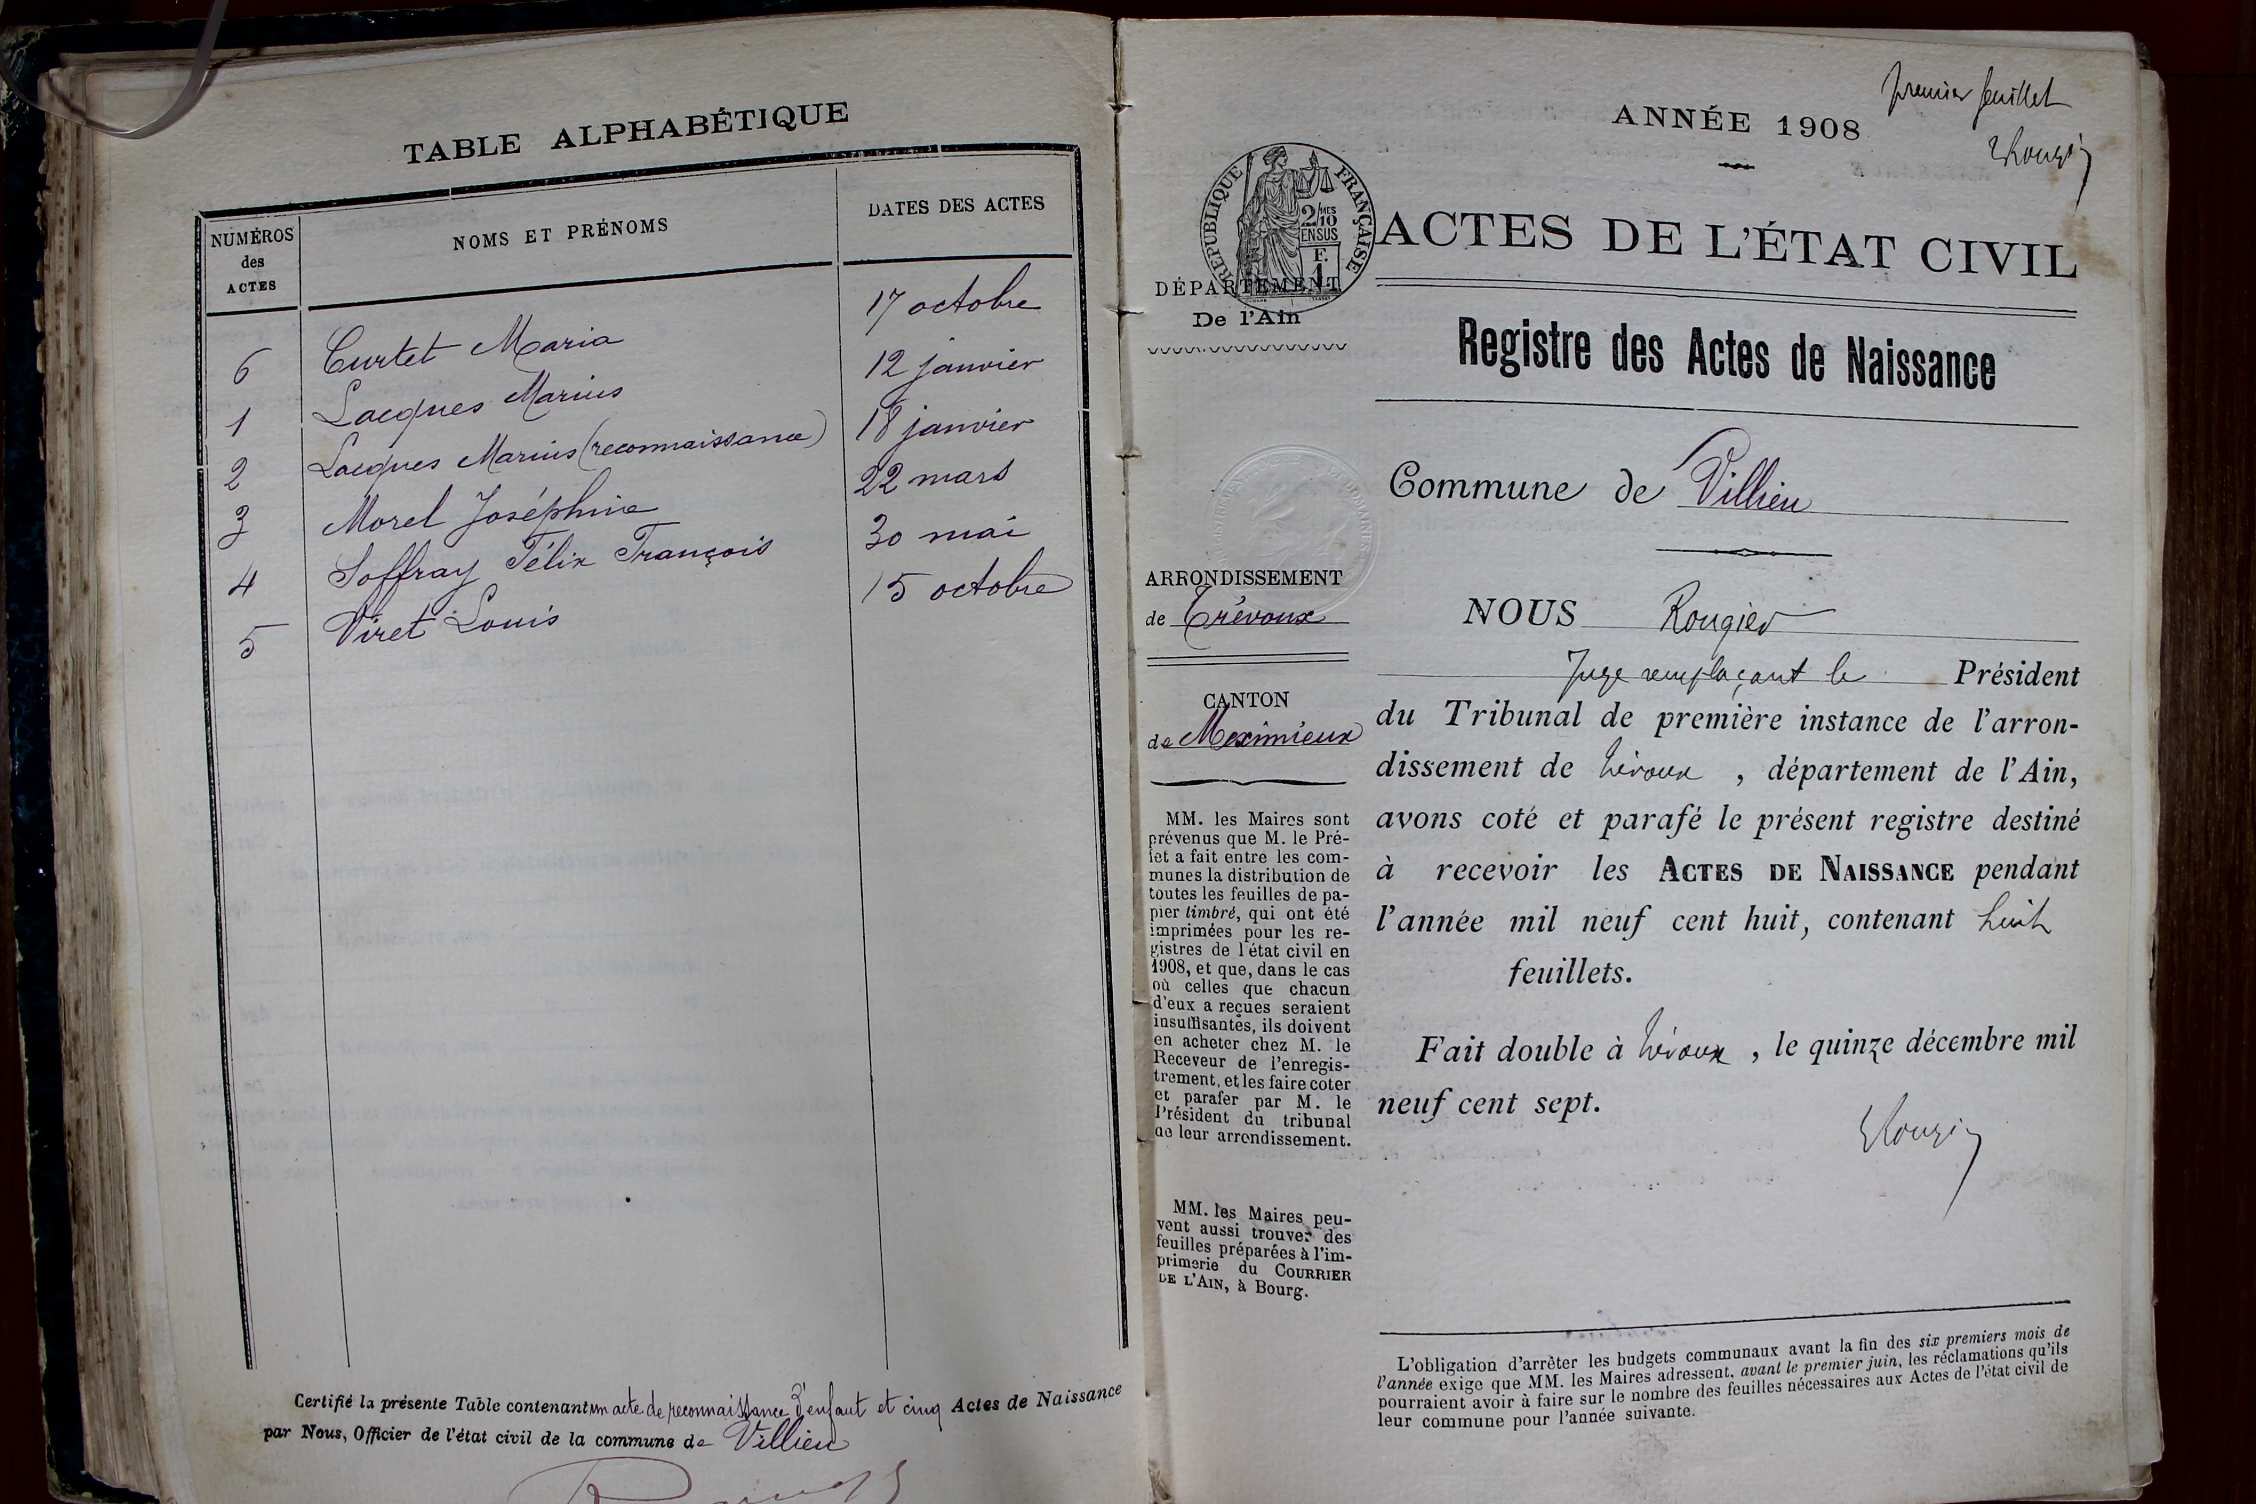 TABLE ALPHABÉTIQUE
NUMÉROS
des
ACTES
NOMS ET PRÉNOMS
DATES DES ACTES
6 Curtet Maria 17 octobre
1 Lacques Marius 12 janvier
2 Lacques Marius (reconnaissance) 18 janvier
3 Morel Joséphine 22 mars
4 Soffray Félix François 30 mai
5 Viret Louis 15 octobre
Certifié la présente Table contenant un acte de reconnaissance d'enfant et cinq Actes de Naissance
par Nous, Officier de l'état civil de la commune de Villieu
premier feuillet
ANNÉE 1908
RÉPUBLIQUE FRANÇAISE
2/10 MES
EN SUS
F.
1
DÉPARTEMENT
De l'Ain
ARRONDISSEMENT
de Trévoux
CANTON
de Meximieux
MM. les Maires sont
prévenus que M. le Pré-
fet a fait entre les com-
munes la distribution de
toutes les feuilles de pa-
pier timbré, qui ont été
imprimées pour les re-
gistres de l'état civil en
1908, et que, dans le cas
où celles que chacun
d'eux a reçues seraient
insuffisantes, ils doivent
en acheter chez M. le
Receveur de l'enregis-
trement, et les faire coter
et parafer par M. le
Président du tribunal
de leur arrondissement.
MM. les Maires peu-
vent aussi trouver des
feuilles préparées à l'im-
primerie du COURRIER
DE L'AIN, à Bourg.
ACTES DE L'ÉTAT CIVIL
Registre des Actes de Naissance
Commune de Villieu
NOUS Rougier
Juge remplaçant le Président
du Tribunal de première instance de l'arron-
dissement de Trévoux, département de l'Ain,
avons coté et parafé le présent registre destiné
à recevoir les ACTES DE NAISSANCE pendant
l'année mil neuf cent huit, contenant huit
feuillets.
Fait double à Trévoux, le quinze décembre mil
neuf cent sept.
L'obligation d'arrêter les budgets communaux avant la fin des six premiers mois de
l'année exige que MM. les Maires adressent, avant le premier juin, les réclamations qu'ils
pourraient avoir à faire sur le nombre des feuilles nécessaires aux Actes de l'état civil de
leur commune pour l'année suivante.